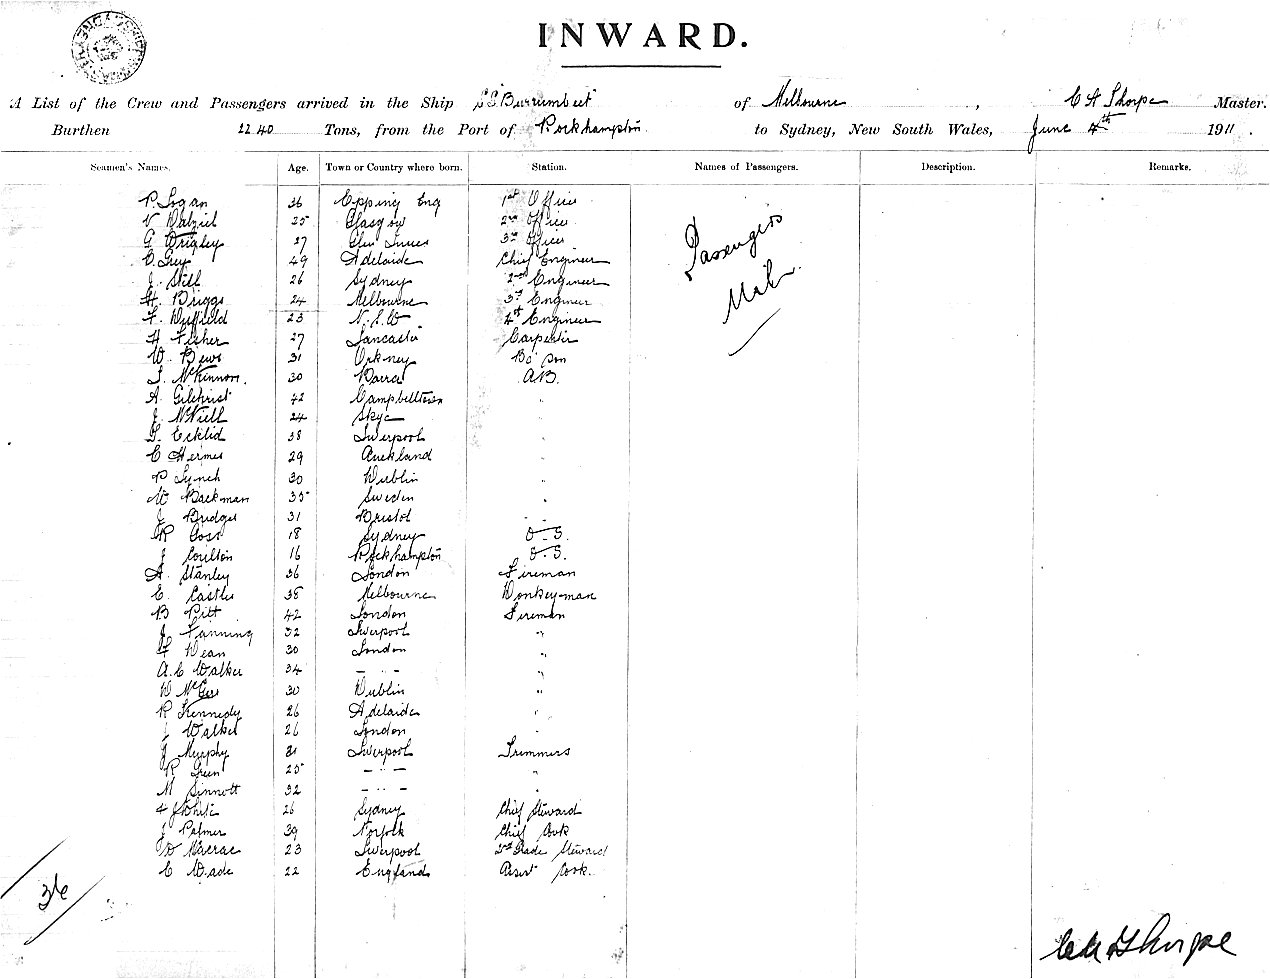 INWARD.
A List of the Crew and Passengers arrived in the Ship SS Burrumbeet of Melbourne , C A Thorpe Master.
Burthen 1240 Tons, from the Port of Rockhampton to Sydney, New South Wales, June 4th 1911.
Seamen's Names. Age. Town or Country where born. Station. Names of Passengers. Description. Remarks.
P. Logan 36 Epping Eng 1st Officer
V Dalziel 25 Glasgow 2nd Officer
G Wrigley 27 Glen Innes 3rd Officer
C. Guy 49 Adelaide Chief Engineer
J. Still 26 Sydney 2nd Engineer
H. Briggs 24 Melbourne 3rd Engineer
F. Duffield 23 N.S.W 4th Engineer
H Fisher 27 Lancaster Carpenter
W. Bews 31 Orkney Bo'son
McKinnon. 30 Barra AB.
A. Gilchrist 42 Campbelltown "
J McNeill 24 Skye "
Ecklid 38 Liverpool "
C Hermes 29 Auckland "
P Lynch 30 Dublin "
W Backman 35 Sweden "
J Bridges 31 Bristol "
R Coss 18 Sydney O.S.
J Coulton 16 Rockhampton O.S.
A. Stanley 36 London Fireman
E. Castles 38 Melbourne Donkeyman
B Pitt 42 London Fireman
J Fanning 32 Liverpool "
F Dean 30 London "
A. C Walker 34 - " - "
D McGee 30 Dublin "
R Kennedy 26 Adelaide "
J Walker 26 London "
J Murphy 31 Liverpool Trimmers
R Green 25 - " - "
M Sinnott 32 - " - "
J White 26 Sydney Chief Steward
J Palmer 39 Norfolk Chief Cook
D Macrae 23 Liverpool 2nd Grade Steward
C Wade 22 England Assist Cook.
Passengers
Nil.
36
C A Thorpe